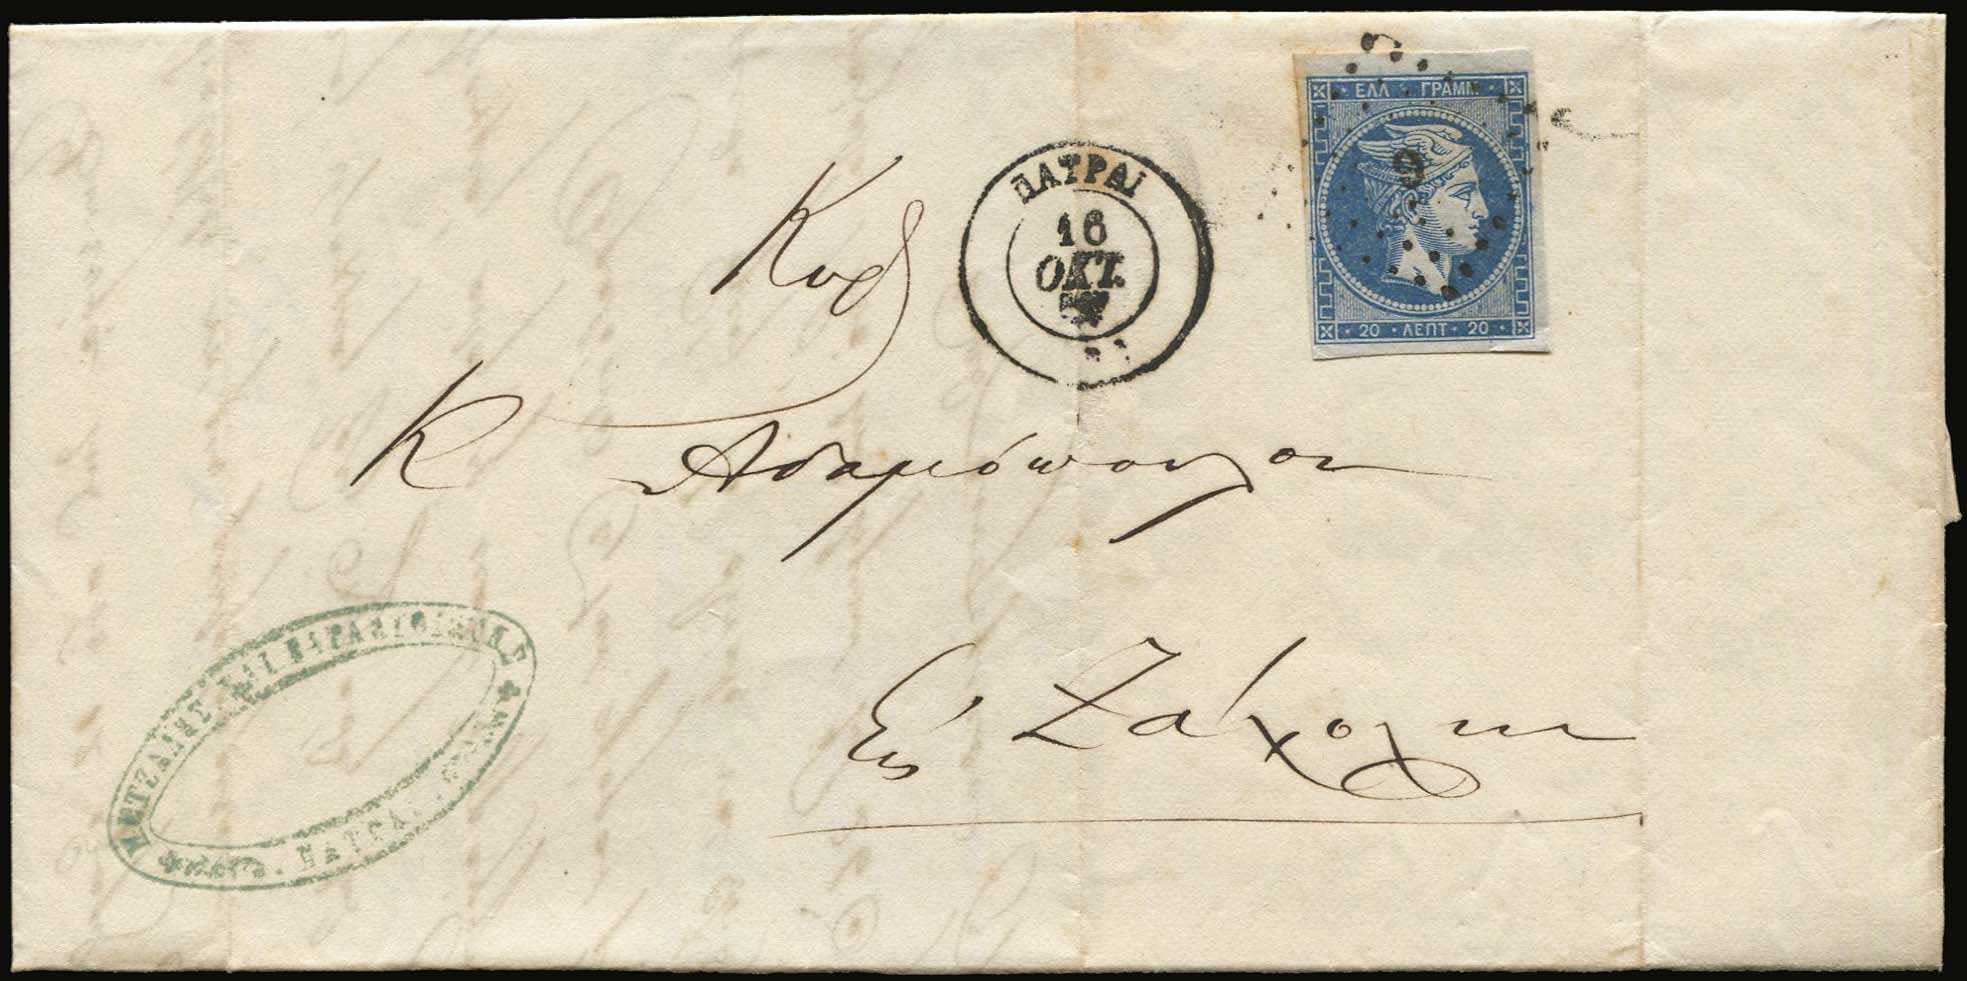 ΕΛΛ ΓΡΑΜΜ
9
20 ΛΕΠΤ 20
ΠΑΤΡΑΙ
16
ΟΚΤ.
Κυρ
Κ Αδαμόπουλον
Εις Ζάχολην
ΚΑΙ